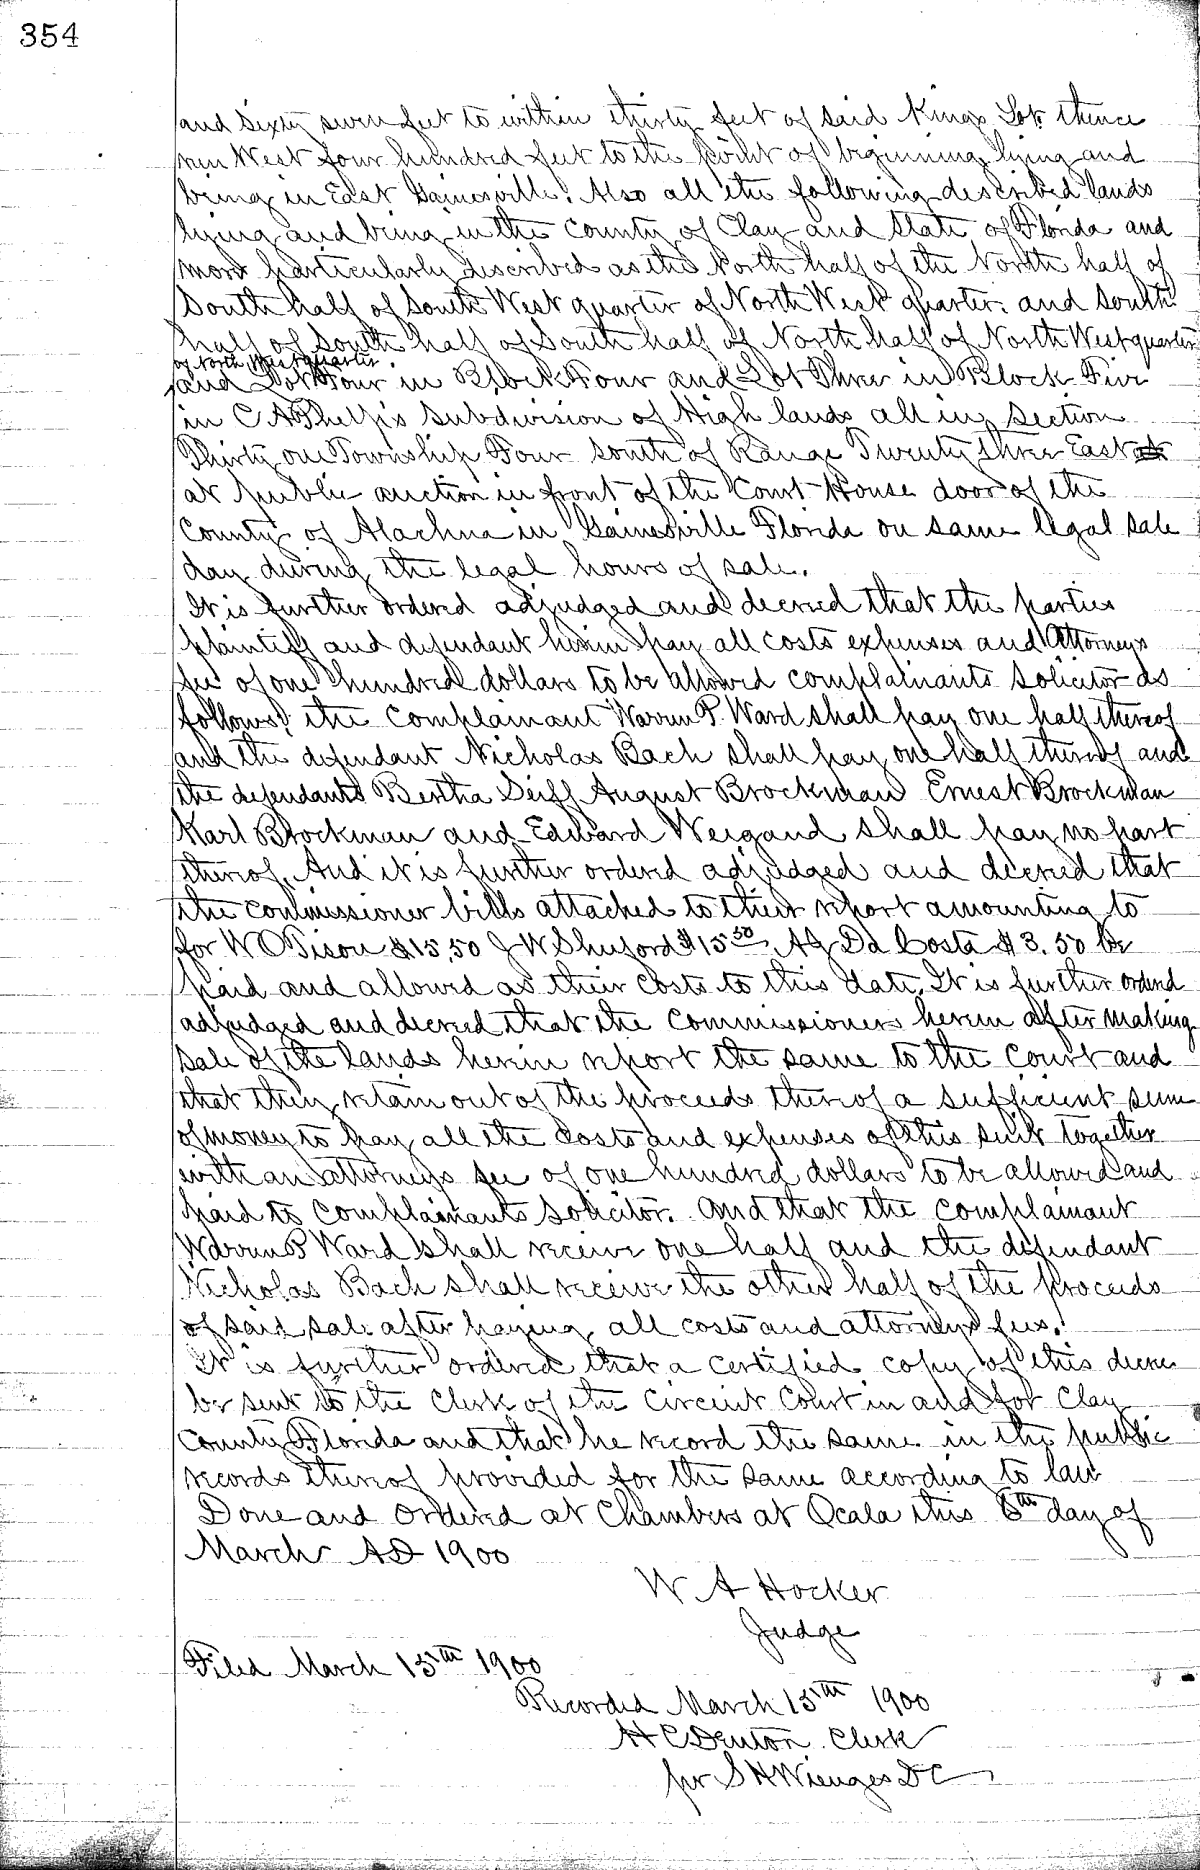 354
and Sixty seven feet to within thirty feet of said Kings Lot thence
run West four hundred feet to the point of beginning lying and
being in East Gainesville. Also all the following described lands
lying and being in the County of Clay and State of Florida and
more particularly described as the North half of the North half of
South half of South West quarter of North West quarter. and South
half of South half of South half of North half of North West quarter
of North West quarter
and Lot Four in Block Four and Lot Three in Block Five
in C A Phelp's Subdivision of High lands all in Section
Thirty one Township Four South of Range Twenty three East
at public auction in front of the Court House door of the
County of Alachua in Gainesville Florida on same legal sale
day during the legal hours of sale.
It is further ordered adjudged and decreed that the parties
plaintiff and defendant herein pay all costs expenses and Attorneys
fee of one hundred dollars to be allowed complainants solicitor as
follows: the Complainant Warren P. Ward shall pay one half thereof
and the defendant Nicholas Bach shall pay one half thereof and
the defendants Bertha Seiff August Brockman Ernest Brockman
Karl Brockman and Edward Weigand shall pay no part
thereof. And it is further ordered adjudged and decreed that
the commissioner bills attached to their report amounting to
for W O Tison $15,50 J W Shuford $15 50 A J Da Costa $3.50 be
paid and allowed as their costs to this date. It is further ordered
adjudged and decreed that the Commissioners herein after making
sale of the lands herein report the same to the Court and
that they retain out of the proceeds thereof a sufficient sum
of money to pay all the Costs and expenses of this suit together
with an attorneys fee of one hundred dollars to be allowed and
paid to Complainants Solicitor. And that the complainant
Warren P Ward shall receive one half and the defendant
Nicholas Bach shall receive the other half of the proceeds
of said sale after paying all costs and attorneys fees.
It is further ordered that a certified copy of this decree
be sent to the Clerk of the Circuit Court in and for Clay
County Florida and that he record the same in the public
records thereof provided for the same according to law
Done and Ordered at Chambers at Ocala this 6th day of
March AD 1900
W A Hocker
Judge
Filed March 15th 1900
Recorded March 15th 1900
H C Denton Clerk
pr S H Wienges D C